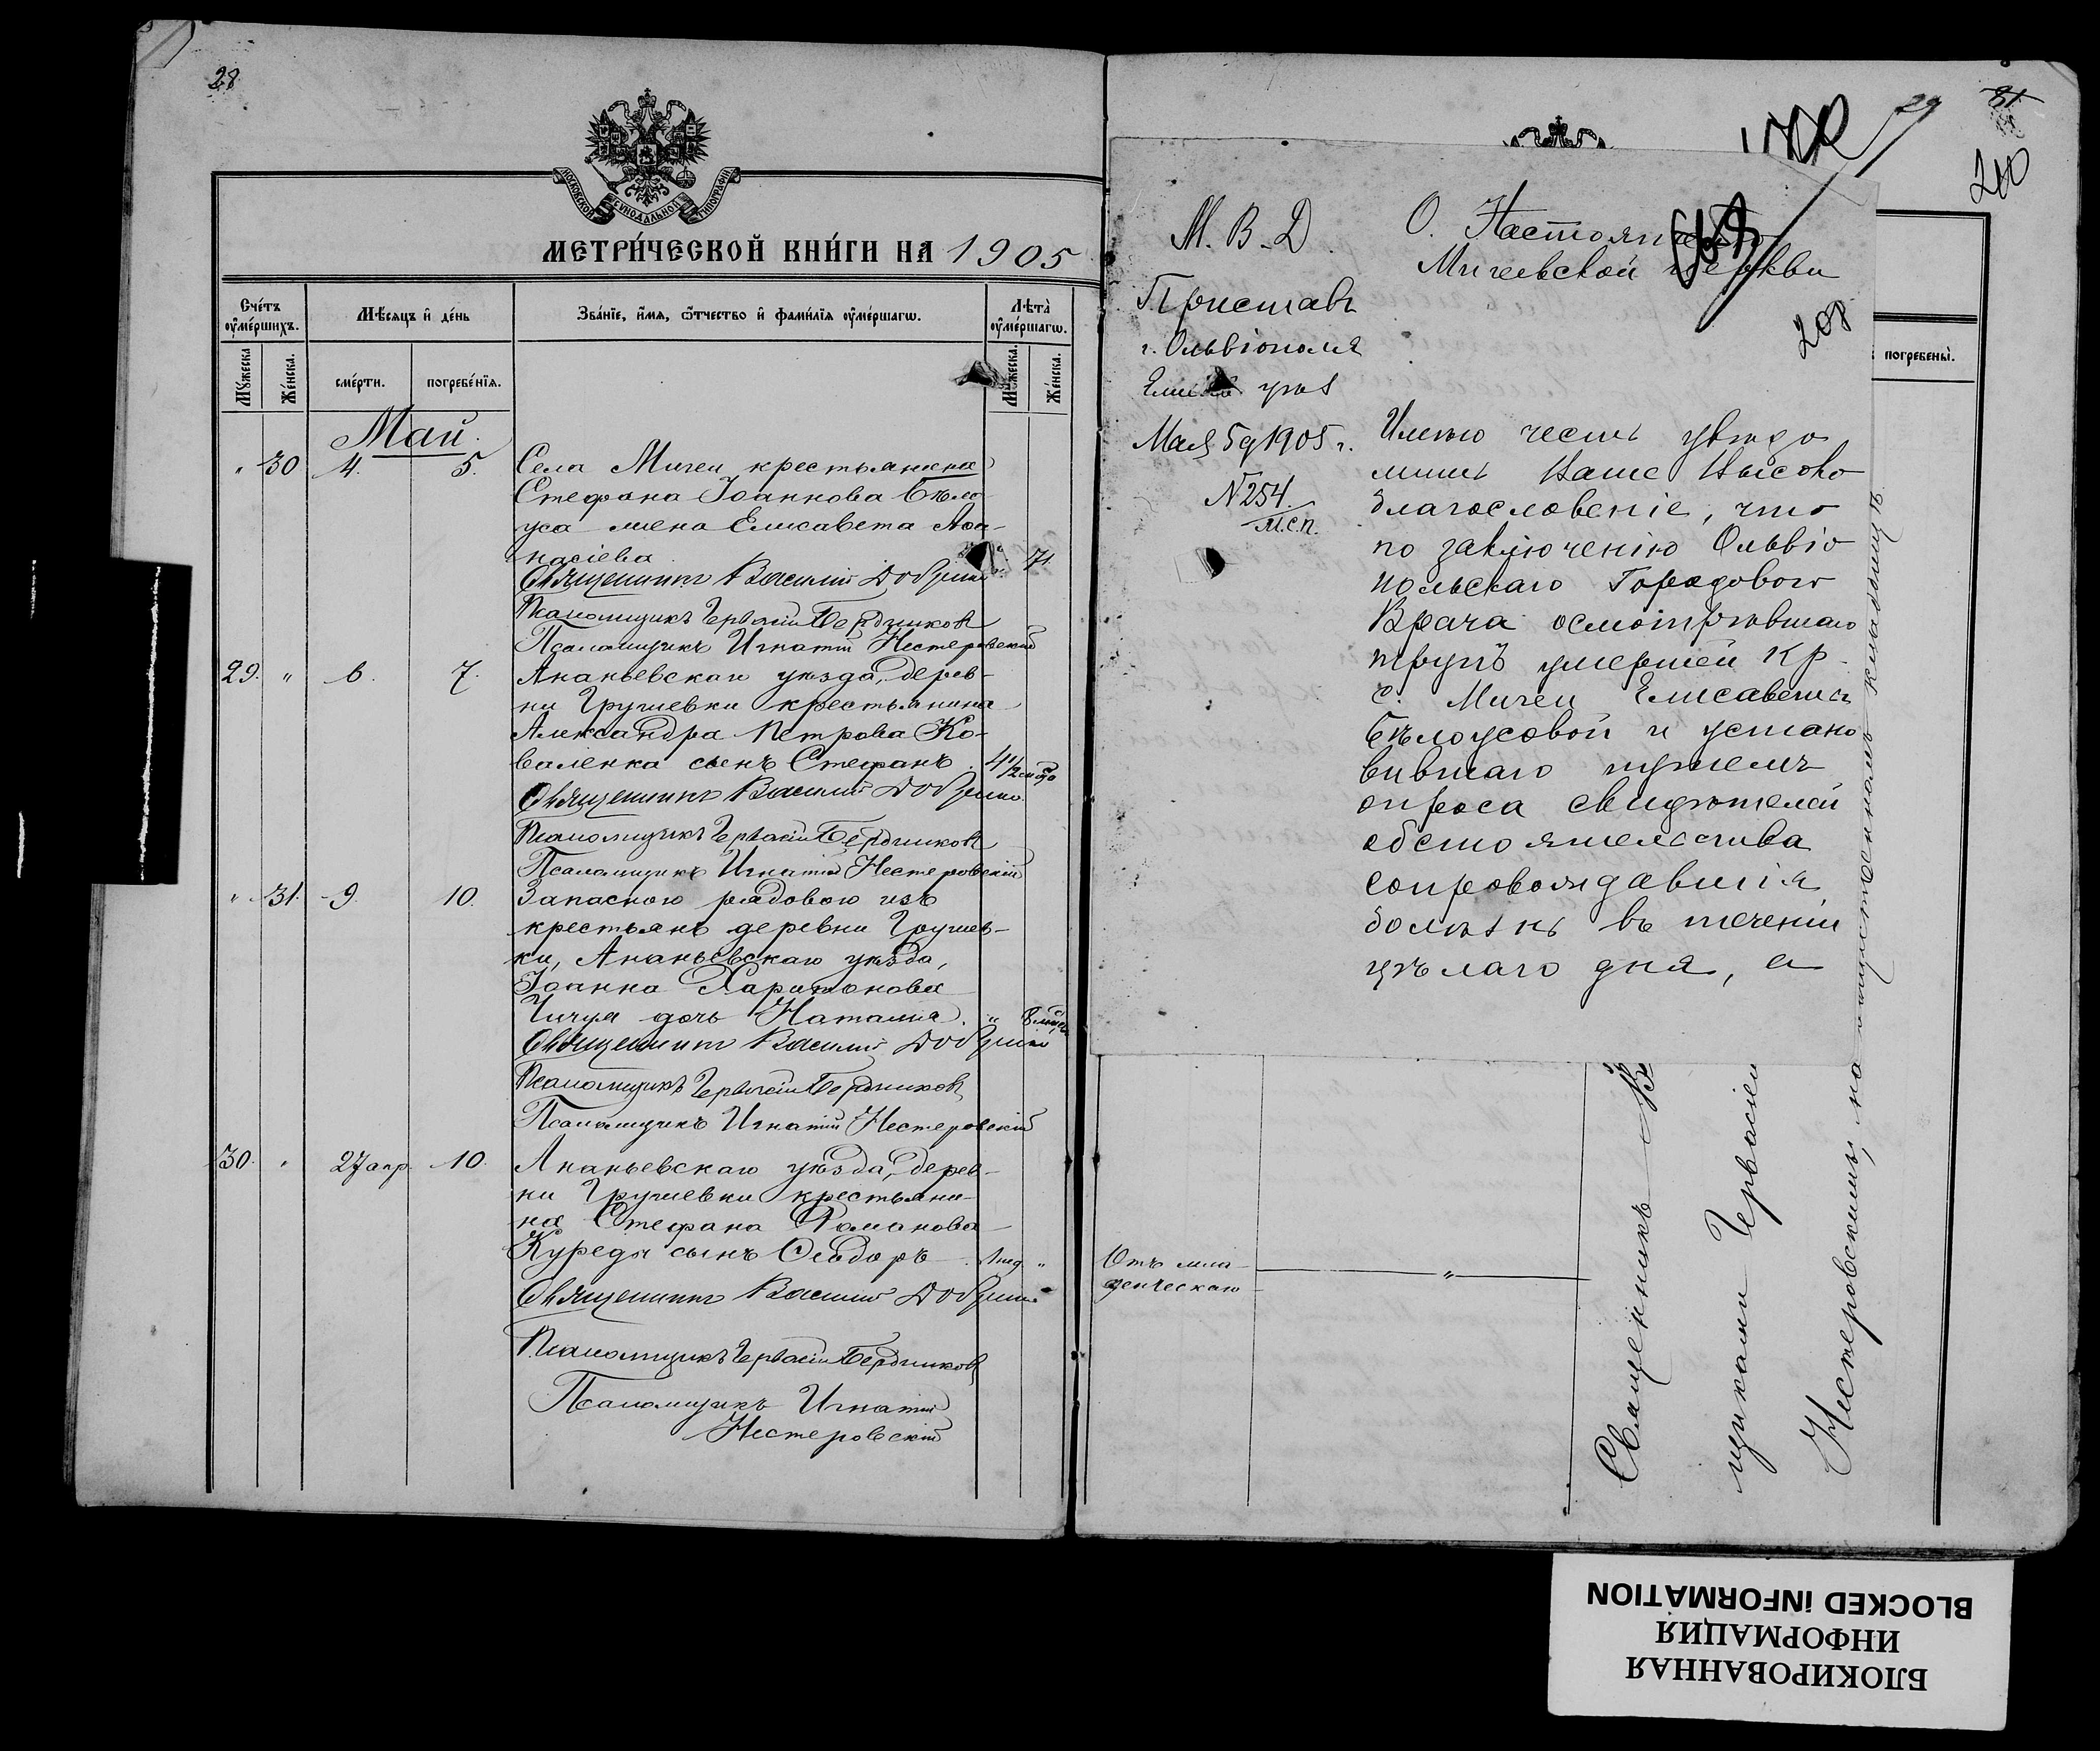 28
МОСКОВСКОЙ СѴНОДАЛЬНОЙ ТИПОГРАФІИ
МЕТРИ́ЧЕСКОЙ КНИ́ГИ НА 1905
Сче́тъ ᲂу҆ме́ршихъ.
Мѣ́сяцъ и҆ де́нь
Зва́нїе, и҆́мя, ѻ҆́тчество и҆ фами́лїя ᲂу҆ме́ршагѡ.
Лѣ́та ᲂу҆ме́ршагѡ.
Мꙋ́жеска
Же́нска.
сме́рти.
погребе́нїя.
Мꙋ́жеска.
Же́нска.
Май.
" 30 4. 5. Села Мигеи крестьянина
Стефана Іоаннова Бѣло-
уса жена Елисавета Аѳа-
насіева " 71
Священникъ Василій
Псаломщикъ Гервасій Бердниковъ
Псаломщикъ Игнатій Нестеровскій
29. " 6. 7. Ананьевскаго уѣзда, дерев-
ни Грушевки крестьянина
Александра Петрова Ко-
валенка сынъ Стефанъ. 4 1/2
Священникъ Василій
Псаломщикъ Гервасій Бердниковъ
Псаломщикъ Игнатій Нестеровскій
" 31. 9. 10. Запасного рядового изъ
крестьянъ деревни Грушев-
ки, Ананьевскаго уѣзда,
Іоанна Харитонова
Чичуя дочь Наталія. " 8
Священникъ Василій
Псаломщикъ Гервасій Бердниковъ
Псаломщикъ Игнатій Нестеровскій
30. " 27 апр. 10. Ананьевскаго уѣзда, дерев-
ни Грушевки крестьяни-
на Стефана Романова
Куреды сынъ Сидоръ 1 нед. "
Священникъ Василій
Псаломщикъ Гервасій Бердниковъ
Псаломщикъ Игнатій
Нестеровскій
29
81
210
208
погребены̀.
М. В. Д.
Приставъ
г. Ольвіополя
Мая 5 д 1905 г.
№ 254
М.С.П.
О. Настоятелю
Мигеевской церкви
Имѣю честь увѣдо
мить Ваше Высоко
благословеніе, что
по заключенію Ольвіо
польскаго Городового
Врача осмотрѣвшаго
трупъ умершей кр.
с. Мигеи Елисаветы
Бѣлоусовой и устано
вившаго путемъ
опроса свидѣтелей
обстоятельства
сопровождавшія
болѣзнь въ теченіи
цѣлаго дня, а
Отъ мла-
денческаго "
Священникъ
щиками Гервасіем
Нестеровскимъ, на общественномъ кладбищѣ
БЛОКИРОВАННАЯ
ИНФОРМАЦИЯ
BLOCKED iNFORMATION